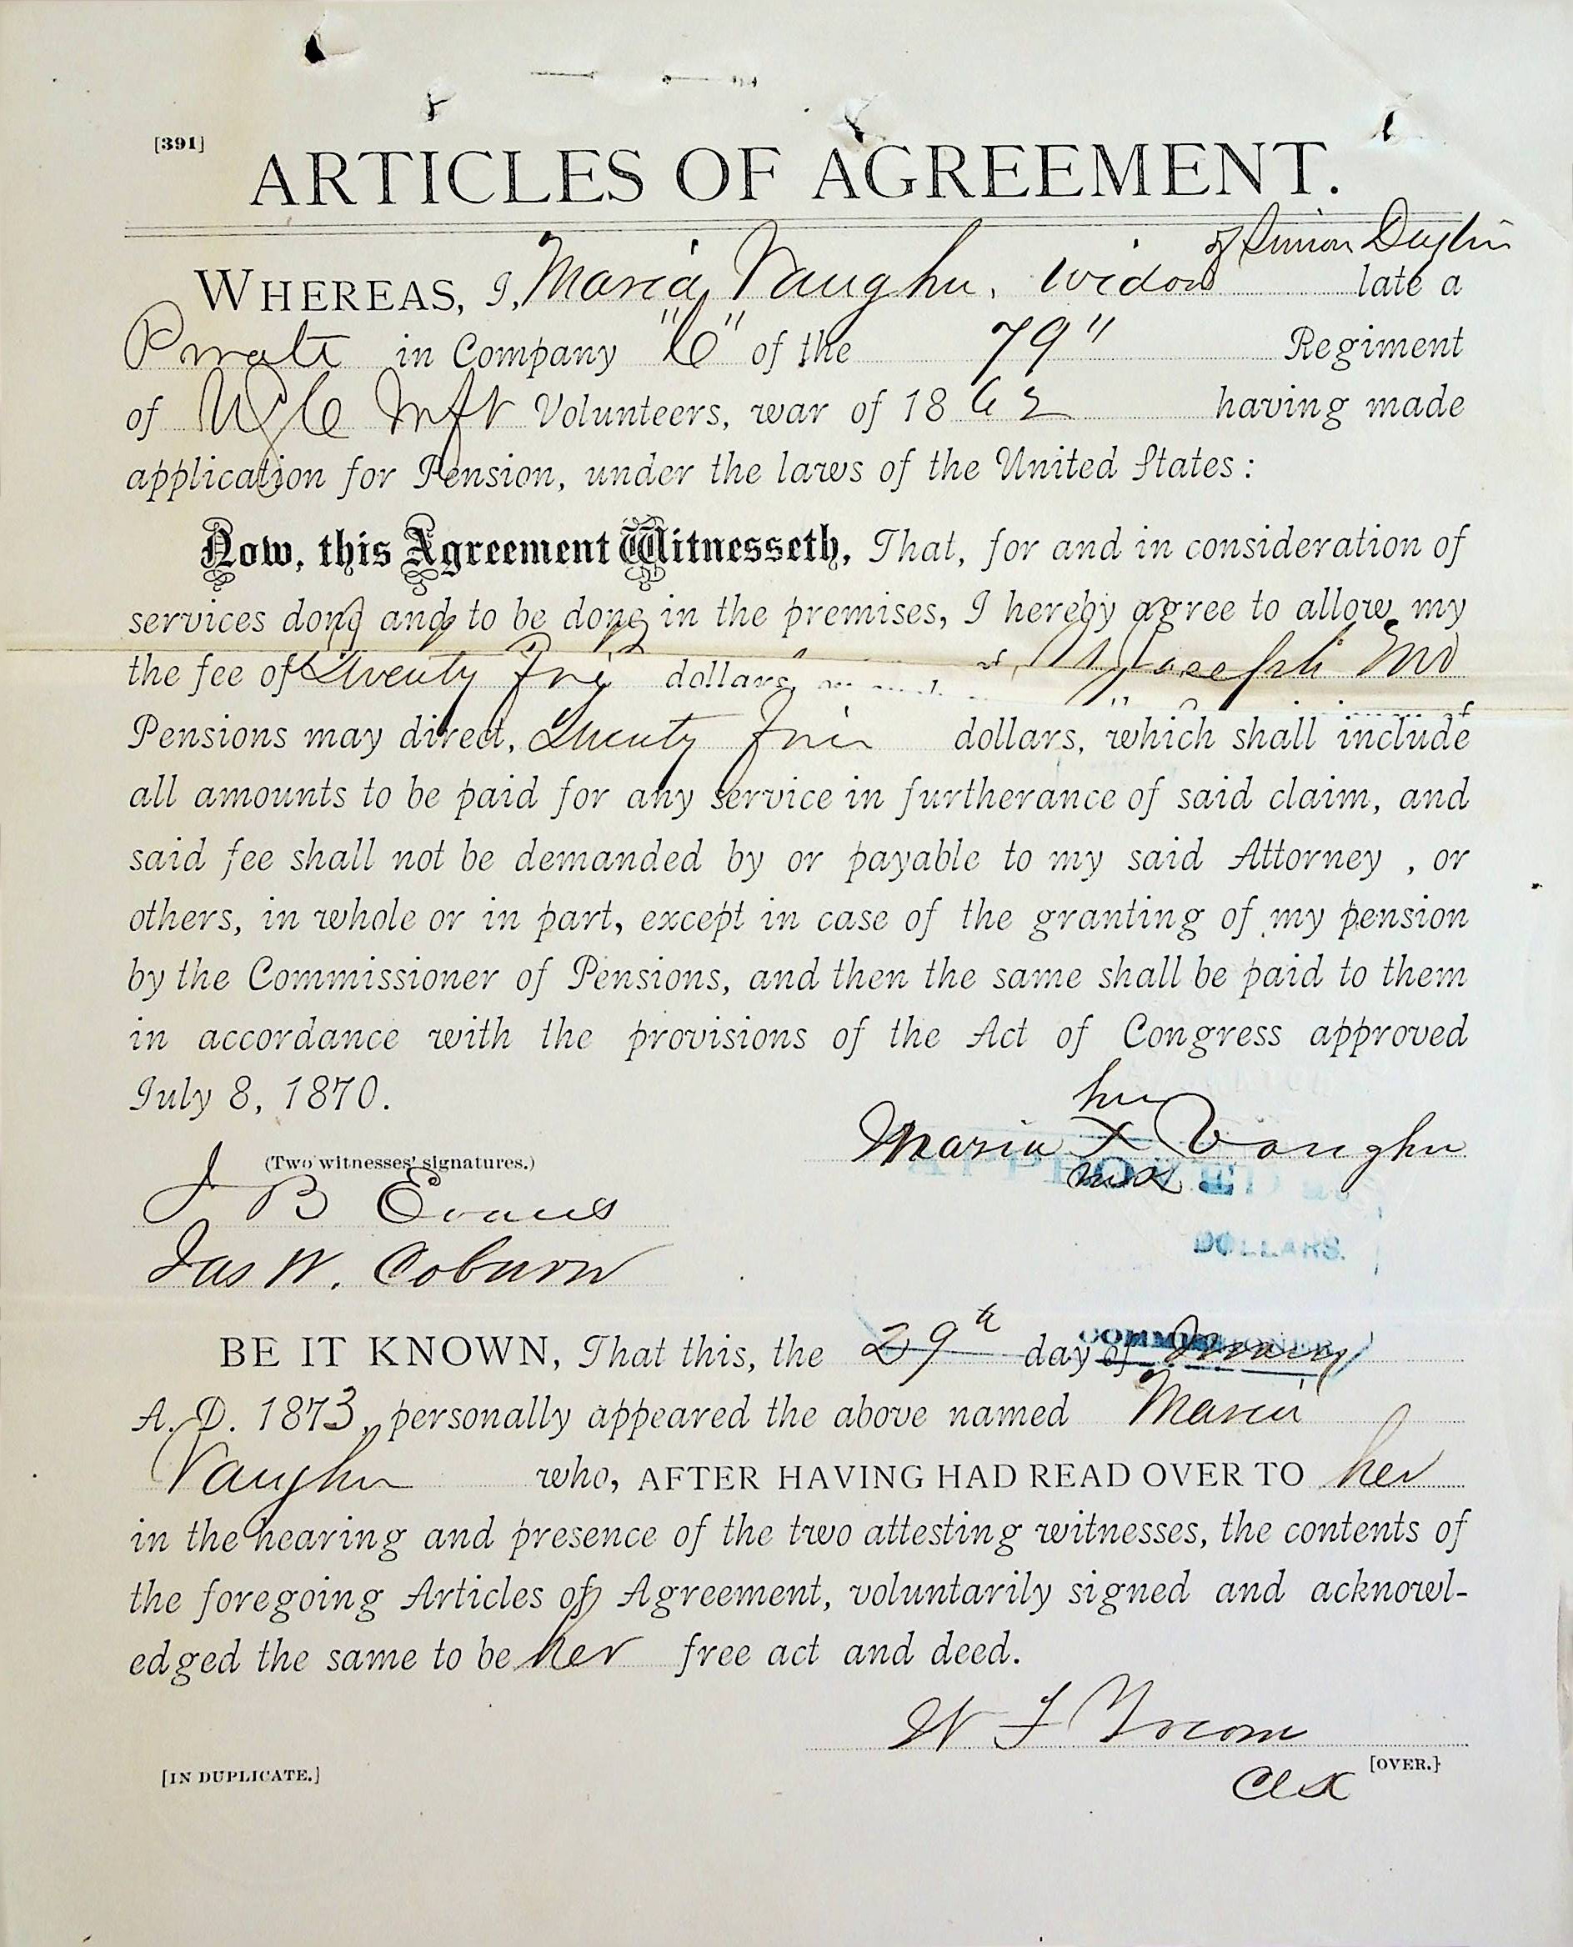 [391]
ARTICLES OF AGREEMENT.
of Simon
WHEREAS, I, Maria Vaughn, widow late a
Private in Company "C" of the 79" Regiment
of USC Inft Volunteers, war of 1862 having made
application for Pension, under the laws of the United States:
Now, this Agreement Witnesseth, That, for and in consideration of
services done and to be done in the premises, I hereby agree to allow my
the fee of Twenty Five dollars, St Joseph Mo
Pensions may direct, Twenty Five dollars, which shall include
all amounts to be paid for any service in furtherance of said claim, and
said fee shall not be demanded by or payable to my said Attorney , or
others, in whole or in part, except in case of the granting of my pension
by the Commissioner of Pensions, and then the same shall be paid to them
in accordance with the provisions of the Act of Congress approved
July 8, 1870.
her
Maria X Vaughn
mark
(Two witnesses' signatures.)
J B Evans
Jas W. Coburn
DOLLARS.
BE IT KNOWN, That this, the 29th day of
A. D. 1873, personally appeared the above named Maria
Vaughn who, AFTER HAVING HAD READ OVER TO her
in the hearing and presence of the two attesting witnesses, the contents of
the foregoing Articles of Agreement, voluntarily signed and acknowl-
edged the same to be her free act and deed.
W F Yocom
Clk
[IN DUPLICATE.]
[OVER.]